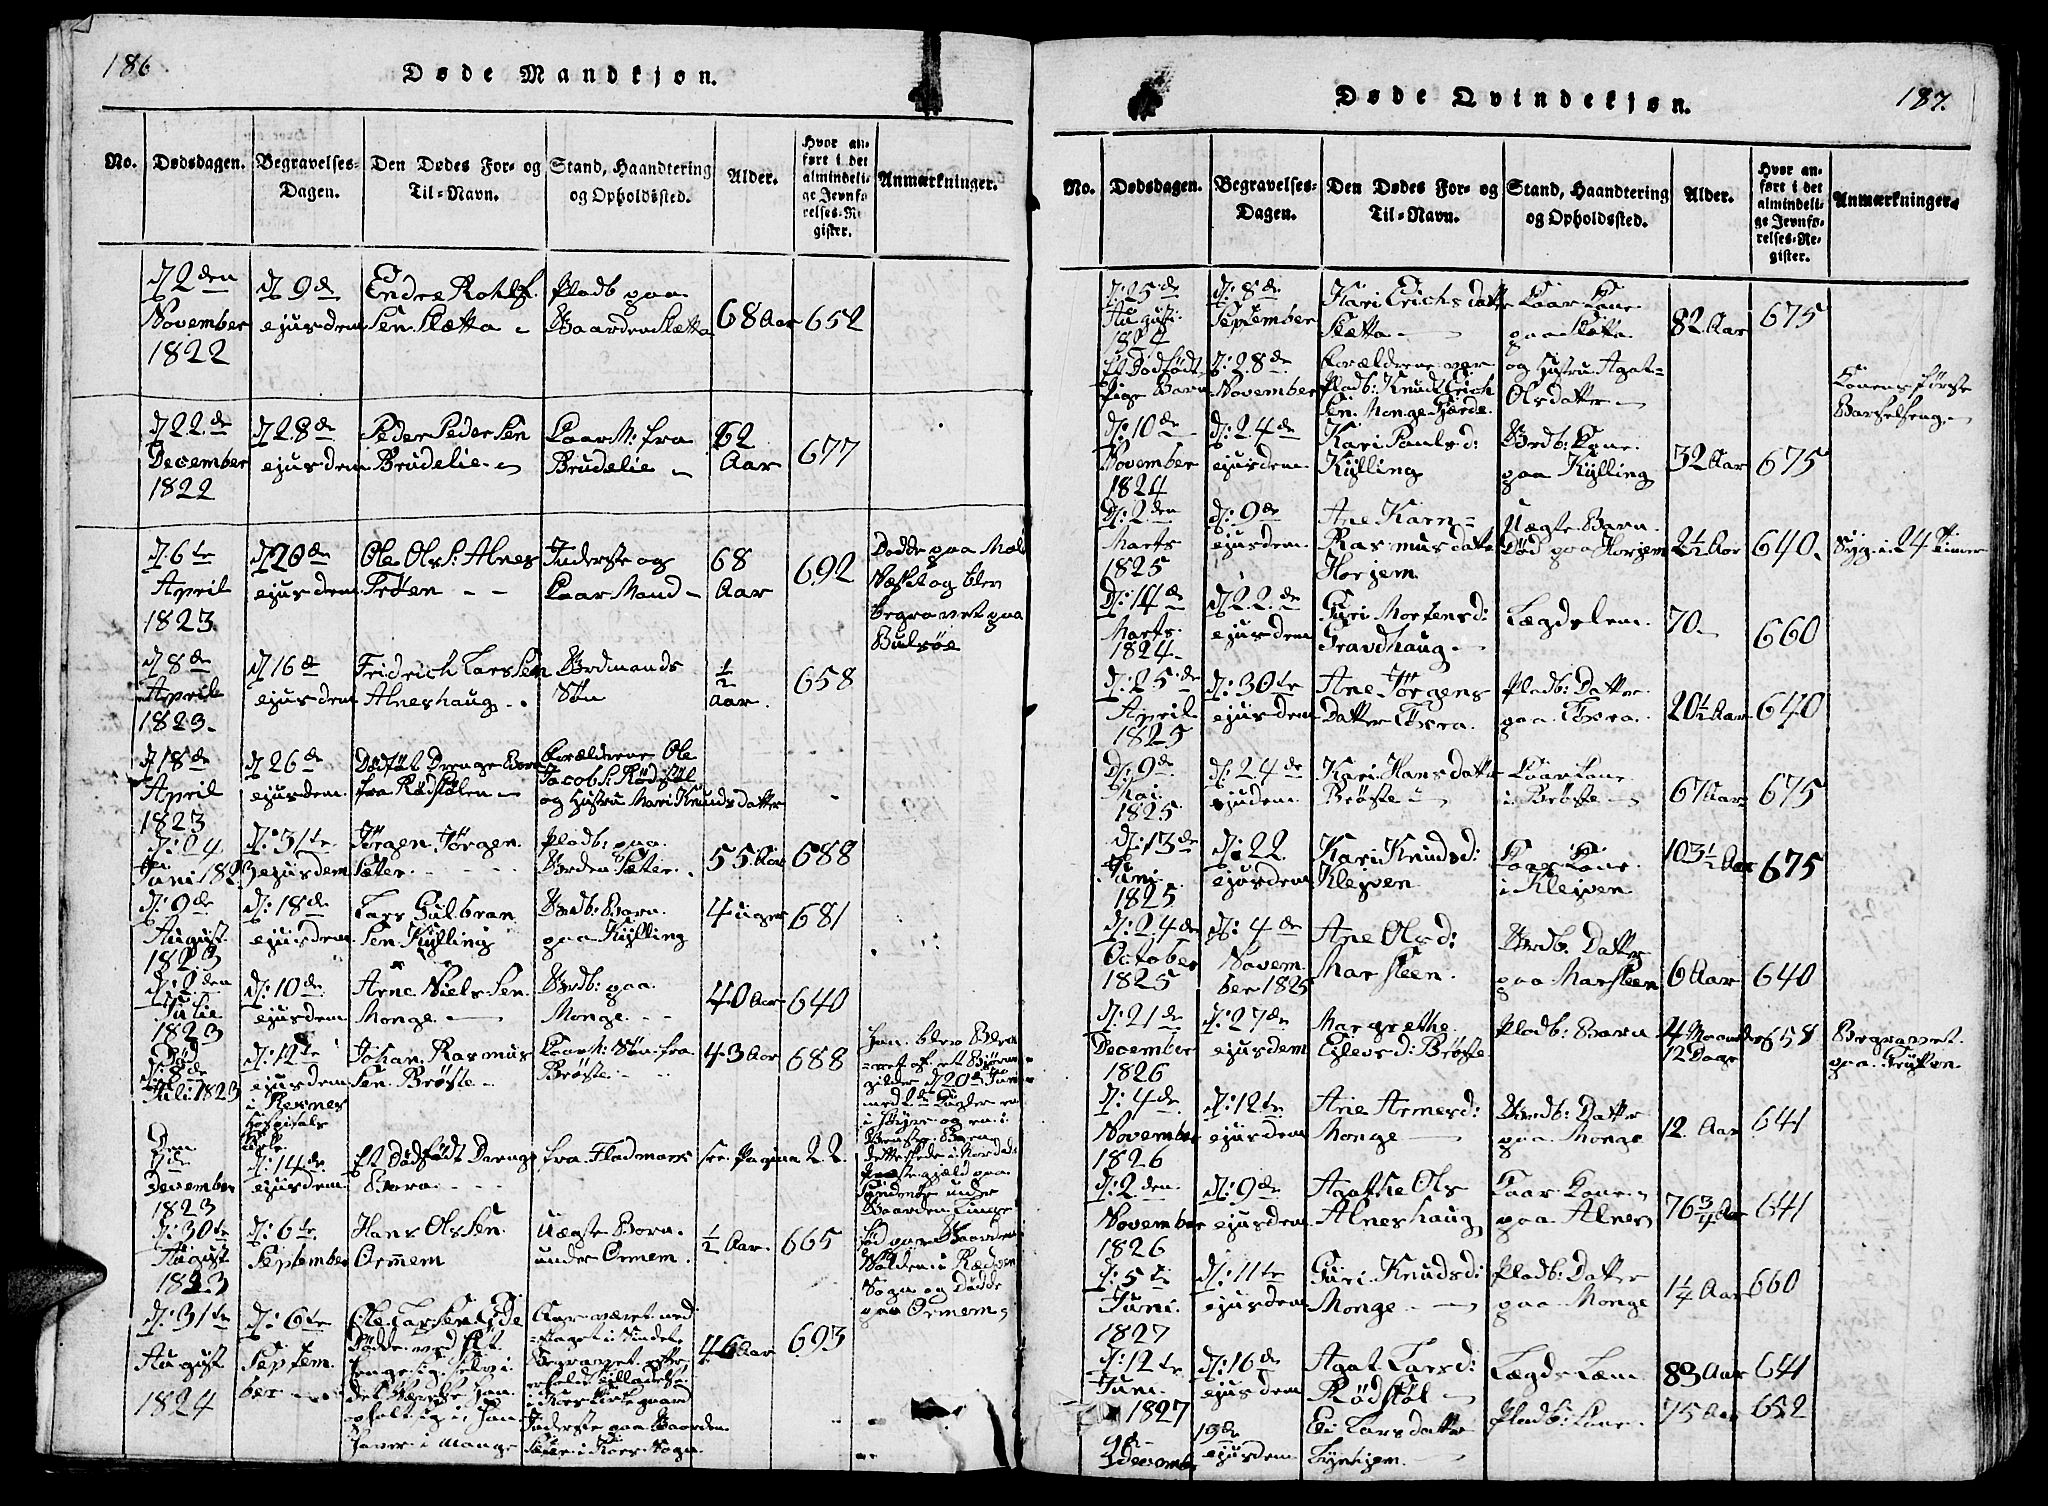 186.
Døde Mandkjøn.
No.
Dødsdagen.
Begravelses-
Dagen.
Den Dødes For- og
Til-Navn.
Stand, Haandtering
og Opholdssted.
Alder.
Hvor an-
ført i det
almindeli-
ge Jevnfø-
relses-Re-
gister.
Anmærkninger.
d 2den
November
1822
d 9de
ejusdem
Endre Rohlf
Sen Sletta
Pladb paa
Gaarden Sletta
68 Aar
652
d 22de
December
1822
d 28de
ejusdem
Peder Peder Sen
Brudelie
Kaar M: fra
Brudelie
62
Aar
677
d 6te
April
1823
d 20de
ejusdem
Ole Ols: Alnes
Trøen
Inderste og
Kaar Mand
68
Aar
692
Dødde paa
og blev
begravet paa
d 8de
April
1823
d 16de
ejusdem
Fridrich Lars Sen
Alneshaug
Grdmands
Søn
1/2
Aar
658
d 18de
April
1823
d 26de
ejusdem
Dødføt Drenge Barn
fra Rødstølen
Forældrene Ole
Jacobs: Rødstøl
og Hustru Mari Knuds datter
Juni 1823
d: 31te
ejusdem
Jørgen Jørgen
Sæter
Pladb: paa
55 Aar
688
d: 9de
August
1823
d: 18de
ejusdem
Lars Gulbran
Sen Kylling
Grdb: Barn
paa Kylling
4 uger
681
d: 2den
Julie
1823
d: 10de
ejusdem
Arne Niels Sen
Monge
Grdb: paa
Monge
40 Aar
640
Død
d: 8de
Juli 1823
d: 12te
ejusdem
i Reknes
Hospitals
Johan Rasmus
Sen Brøste
Kaar M: Søn fra
Brøste
43 Aar
688
Den
December
1823
d: 14de
ejusdem
Et Dødfødt Drenge
Barn
fra Fladmark
see Pagina 22
d: 30te
August
1823
d: 6te
September
Hans Ols Sen
Ormem
Uægte Barn
under Ormem
1/2 Aar
665
Sogn og Dødde
paa Ormem
d: 31te
August
1824
d: 6te
Septem
ber
Ole Lars Sen
Dødde ved
46 Aar
693
187.
Døde Qvindekjøn.
No.
Dødsdagen.
Begravelses-
Dagen.
Den Dødes For- og
Til-Navn.
Stand, Haandtering
og Opholdssted.
Alder.
Hvor an-
ført i det
almindeli-
ge Jevnfø-
relses-Re-
gister.
Anmærkninger.
d: 25de
Augusti
d: 8de
September
Kari Erichs datter
Sletta
Kaar Kone
paa Sletta
82 Aar
675
Et Dødfødt
Pige Barn
d: 28de
November
Forældrene var
Pladb: Knud Erich
Sen Monge Gjerde
og Hustru Agat
Olsdatter
Konens første
Barselseng
d: 10de
November
1824
d: 24de
ejusdem
Kari Paulsd:
Kylling
Grdb: Kone
paa Kylling
32 Aar
675
d: 2den
Marts
1825
d: 9de
ejusdem
Ane Karn
Rasmus datter
Horjem
Uægte Barn
Død paa Horjem
2 1/2 Aar
640
Syg i 24 Timer
d: 14de
Marts
1824
d: 22de
ejusdem
Guri Mortensd:
Gravdhaug
Lægdslem
70
660
d: 25de
April
1825
d: 30te
ejusdem
Ane Jørgens
Datter
Pladb: Datter
paa
20 1/2 Aar
640
d: 9de
Mai
1825
d: 24de
ejudem
Kari Hans datter
Brøste
Kaar Kone
i Brøste
67 Aar
675
d: 13de
Juni
1825
d: 22
ejusdem
Kari Knudsd:
Klejven
Kaar Kone
i Klejven
103 1/2 Aar
675
d: 24de
October
1825
d: 4de
Novem
ber 1825
Ane Olsd:
Marsteen
Grdb: Datter
paa Marsteen
6 Aar
640
d: 21de
December
1826
d: 27de
ejusdem
Margrethe
Ejlevsd: Brøste
Pladb: Barn
4 Maander
12 Dage
658
Begravet
paa
d: 4de
November
1826
d: 12te
ejusdem
Ane Arnesd:
Monge
Grdb: Datter
paa Monge
12 Aar
641
d: 2den
November
1826
d: 9de
ejusdem
Agathe Ols
Alneshaug
Kaar Kone
paa Alnes
76 3/4 Aar
641
d: 5te
Juni
1827
d: 11te
ejusdem
Guri Knudsd:
Monge
Pladb: Datter
paa Monge
1 1/4 Aar
660
d: 12te
Juni
1827
d: 16de
ejusdem
Agat Larsd:
Rødstøl
Lægds Lem
83 Aar
641
9de
Decemb
19de
ejusdem
Eli Lars datter
Pladb: Kone
75 Aar
652